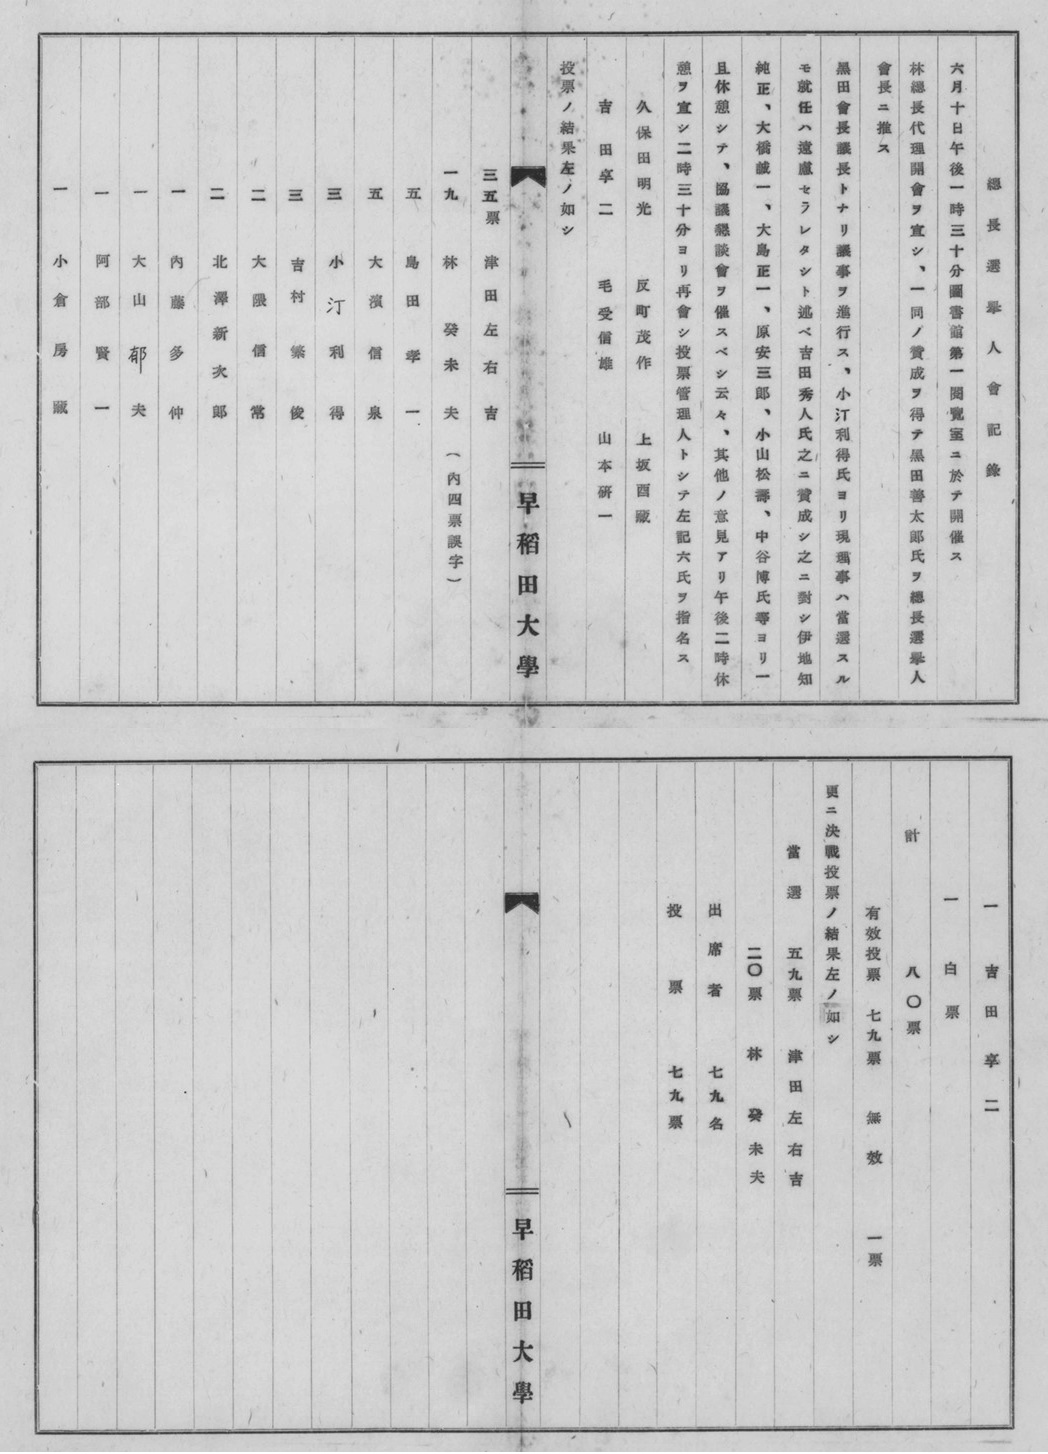 總長選擧人會記錄
六月十日午後一時三十分圖書館第一閲覽室ニ於テ開催ス
林總長代理開會ヲ宣シ、一同ノ賛成ヲ得テ黑田善太郎氏ヲ總長選擧人
會長ニ推ス
黑田會長議長トナリ議事ヲ進行ス、小汀利得氏ヨリ現理事ハ當選スル
モ就任ハ遠慮セラレタシト述ベ吉田秀人氏之ニ賛成シ之ニ對シ伊地知
純正、大橋誠一、大島正一、原安三郎、小山松壽、中谷博氏等ヨリ一
且休憩シテ、協議懇談會ヲ催スベシ云々、其他ノ意見アリ午後二時休
憩ヲ宣シ二時三十分ヨリ再會シ投票管理人トシテ左記六氏ヲ指名ス
久保田明光 反町茂作 上坂酉藏
吉田享二 毛受信雄 山本研一
投票ノ結果左ノ如シ
早稻田大學
三五票 津田左右吉
一九 林癸未夫(內四票誤字)
五 島田孝一
五 大濱信泉
三 小汀利得
三 吉村繁俊
二 大隈信常
二 北澤新次郎
一 內藤多仲
一 大山郁夫
一 阿部賢一
一 小倉房藏
一 吉田享二
一 白票
計 八〇票
有效投票 七九票 無效 一票
更ニ決戰投票ノ結果左ノ如シ
當選 五九票 津田左右吉
二〇票 林癸未夫
出席者 七九名
投票 七九票
早稻田大學